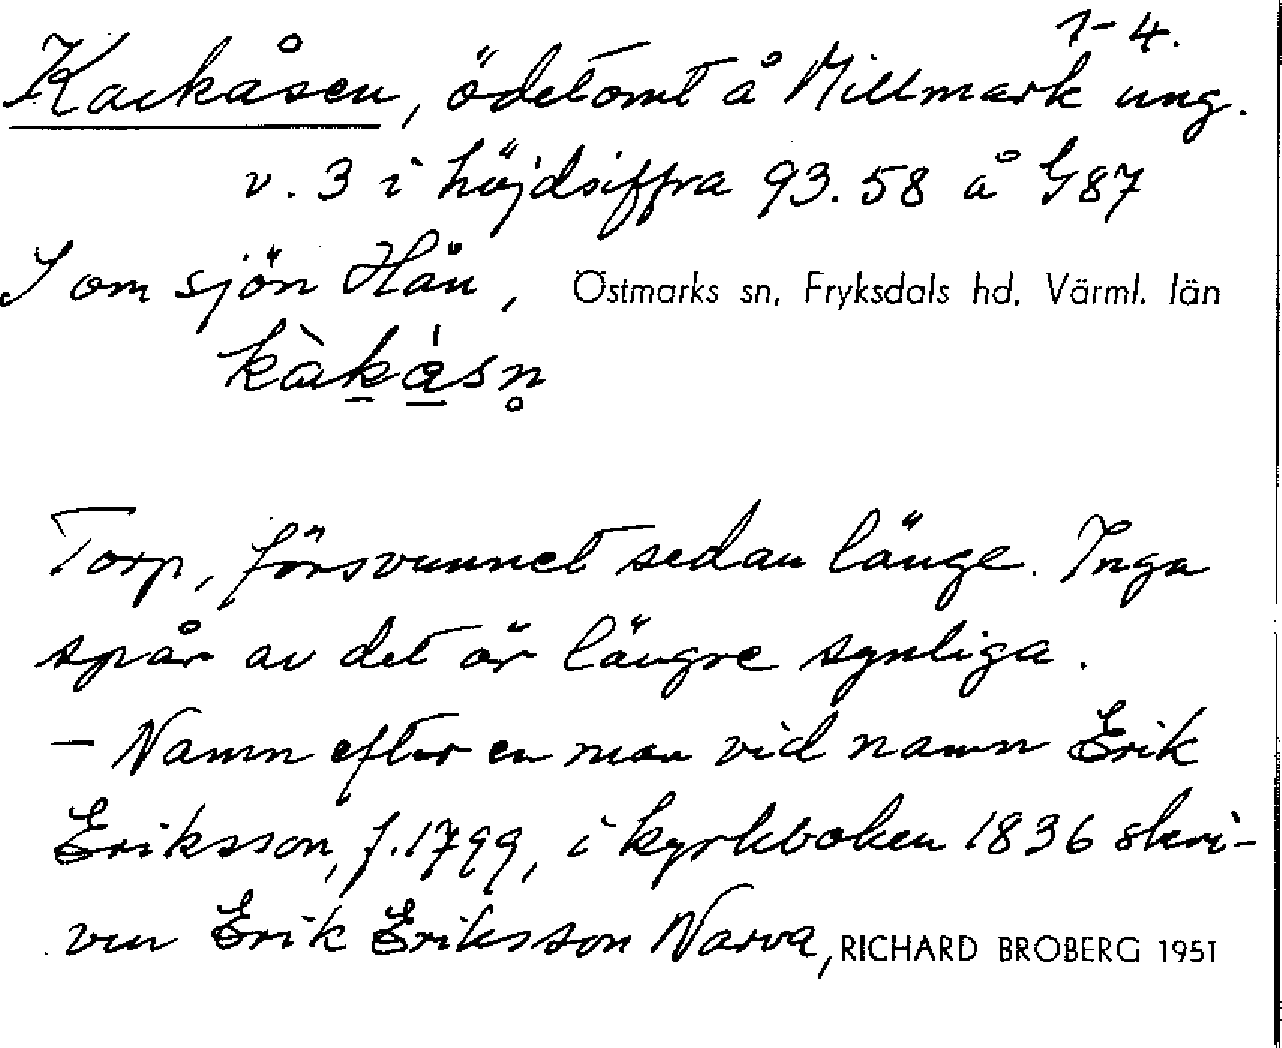 1-4.
Kackåsen, ödetomt å Millmark ung.
v. 3 i höjdsiffra 93.58 å G87
S om sjön Hån, Östmarks sn, Fryksdals hd, Värml. län
kàkåsn̥
Torp, försvunnet sedan länge. Inga
spår av det är längre synliga.
– Namn efter en man vid namn Erik
Eriksson, f. 1799, i kyrkboken 1836 skri-
ven Erik Eriksson Narva, RICHARD BROBERG 1951